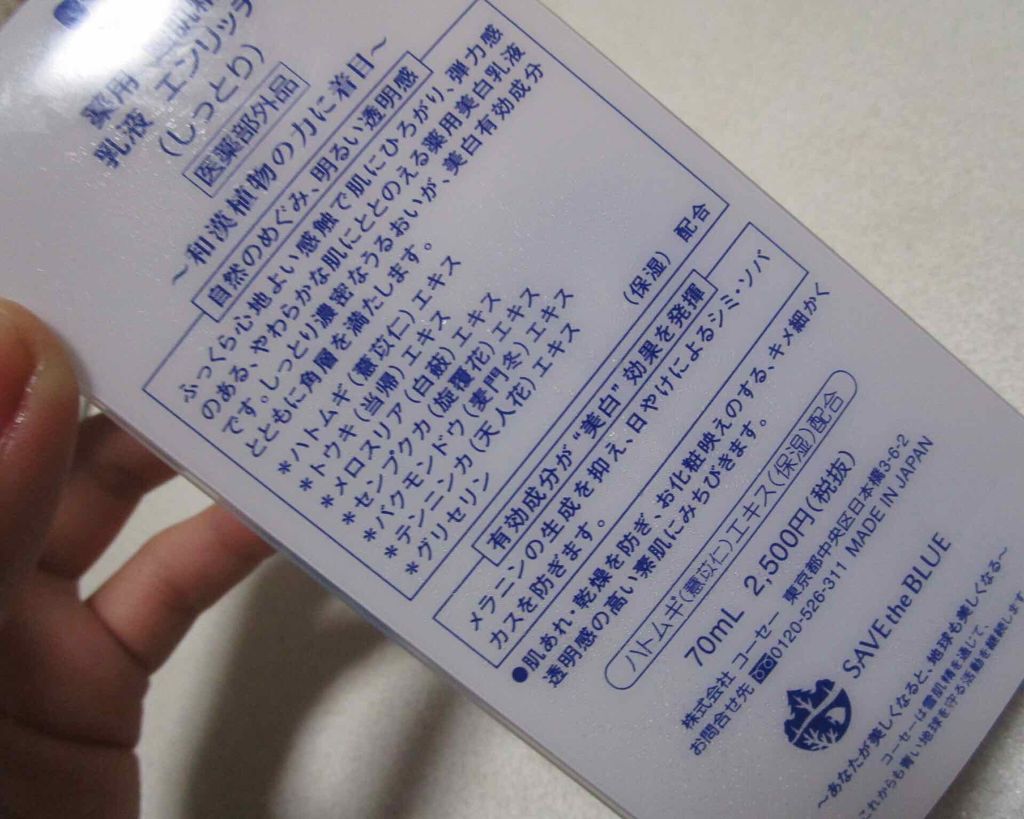 薬用
乳液 エンリッチ
(しっとり)
医薬部外品
~和漢植物の力に着目~
自然のめぐみ、明るい透明感
ふっくら心地よい感触で肌にひろがり、弾力感
のある、やわらかな肌にととのえる薬用美白乳液
です。しっとり濃密なうるおいが、美白有効成分
とともに角層を満たします。
*ハトムギ(薏苡仁)エキス
*トウキ(当帰)エキス
*メロスリア(白蘞)エキス
*センプクカ(旋覆花)エキス
*バクモンドウ(麦門冬)エキス
*テンニンカ(天人花)エキス
*グリセリン (保湿) 配合
有効成分が“美白”効果を発揮
メラニンの生成を抑え、日やけによるシミ・ソバ
カスを防ぎます。
●肌あれ・乾燥を防ぎ、お化粧映えのする、キメ細かく
透明感の高い素肌にみちびきます。
ハトムギ(薏苡仁)エキス(保湿)配合
70mL 2,500円(税抜)
株式会社 コーセー 東京都中央区日本橋3-6-2
お問合せ先 0120-526-311 MADE IN JAPAN
SAVE the BLUE
~あなたが美しくなると、地球も美しくなる~
コーセーは雪肌精を通じて、
これからも青い地球を守る活動を継続します